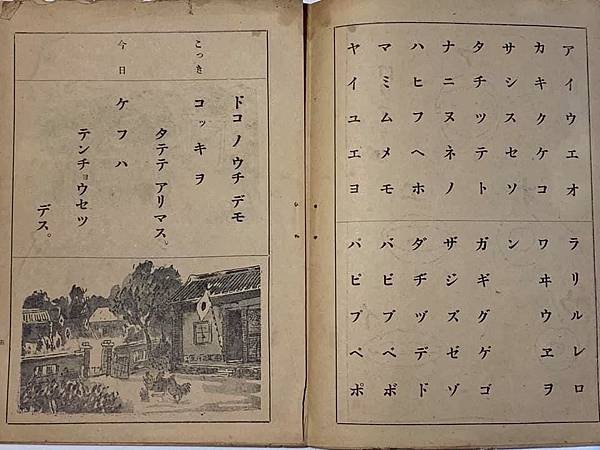 アイウエオ
カキクケコ
サシスセソ
タチツテト
ナニヌネノ
ハヒフヘホ
マミムメモ
ヤイユエヨ
ラリルレロ
ワヰウヱヲ
ン
ガギグゲゴ
ザジズゼゾ
ダヂヅデド
バビブベボ
パピプペポ
こっき
今日
ドコ ノ ウチ デモ
コッキ ヲ
タテテ アリマス。
ケフハ
テンチョウセツ
デス。